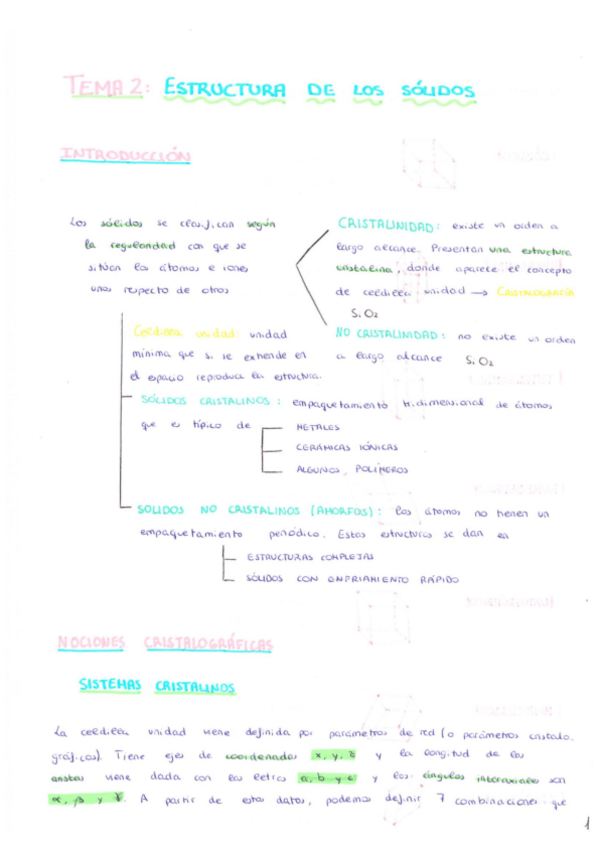 TEMA 2: ESTRUCTURA DE LOS SÓLIDOS
INTRODUCCIÓN
Los sólidos se clasifican según
la regularidad con que se
sitúan los átomos e iones
unos respecto de otros
CRISTALINIDAD: existe un orden a
largo alcance. Presentan una estructura
cristalina, donde aparece el concepto
de celdilla unidad → CRISTALOGRAFÍA
SiO2
NO CRISTALINIDAD: no existe un orden
a largo alcance SiO2
Celdilla unidad: unidad
mínima que si se extiende en
el espacio reproduce la estructura.
SÓLIDOS CRISTALINOS: empaquetamiento tridimensional de átomos
que es típico de
METALES
CERÁMICAS IÓNICAS
ALGUNOS POLÍMEROS
SOLIDOS NO CRISTALINOS (AMORFOS): los átomos no tienen un
empaquetamiento periódico. Estas estructuras se dan en
ESTRUCTURAS COMPLEJAS
SÓLIDOS CON ENFRIAMIENTO RÁPIDO
NOCIONES CRISTALOGRÁFICAS
SISTEMAS CRISTALINOS
La celdilla unidad viene definida por parámetros de red (o parámetros cristalo-
gráficos). Tiene ejes de coordenadas x, y, z y la longitud de las
aristas viene dada con las letras a, b y c y los ángulos interaxiales son
α, β y γ. A partir de estos datos, podemos definir 7 combinaciones que
1